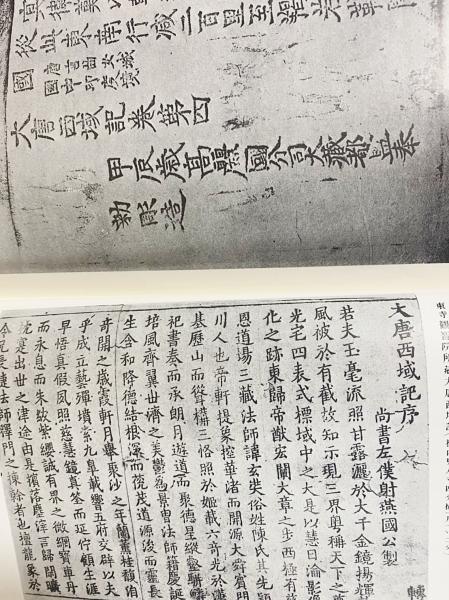 從此東南行減二百里至
國 唐言曲女城國中印度境
大唐西域記卷第四
甲辰歲高麗國分司大藏都監奉
勅彫造
大唐西域記序
尚書左僕射燕國公製
若夫玉毫流照甘露灑於大千金鏡揚輝
風被於有截故知示現三界粤稱天下之
光宅四表式標域中之大是以慧日淪影
化之跡東歸帝猷宏闡大章之步西極有
恩道場三藏法師諱玄奘俗姓陳氏其先
川人也帝軒提象控華渚而開源大舜賓門
基歷山而聳構三恪照於姬載六奇光於漢
祀書奏而承朗月遊道而聚德星縱壑駢鱗
培風齊翼世濟之美鬱為景胄法師籍慶誕
生含和降德結根深而茂道源浚而靈長
奇開之歲霞軒月舉聚沙之年蘭薰桂馥洎
乎成立藝殫墳素九皐載響五府交辟以夫
早悟真假夙照慈慧鏡真筌而延佇顧生涯
而永息而朱紱紫纓誠有界之徽網寶車丹
枕寔出世之津途由是擯落塵滓言歸閑曠
令兄長捷法師釋門之棟幹者也擅龍象於